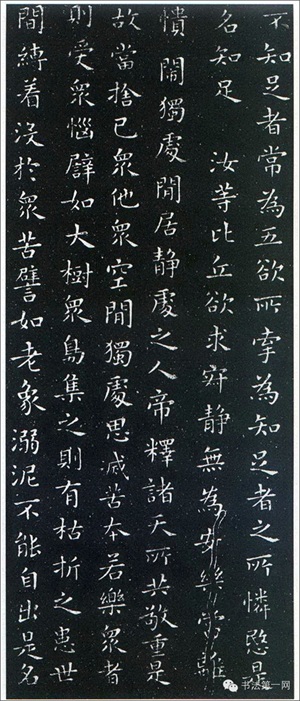 不知足者常為五欲所牽為知足者之所憐愍是
名知足　汝等比丘欲求寂静無為安樂當離
憒閙獨處閒居静處之人帝釋諸天所共敬重是
故當捨己衆他衆空閒獨處思滅苦本若樂衆者
則受衆惱譬如大樹衆鳥集之則有枯折之患世
間縛着没於衆苦譬如老象溺泥不能自出是名
书法第一网